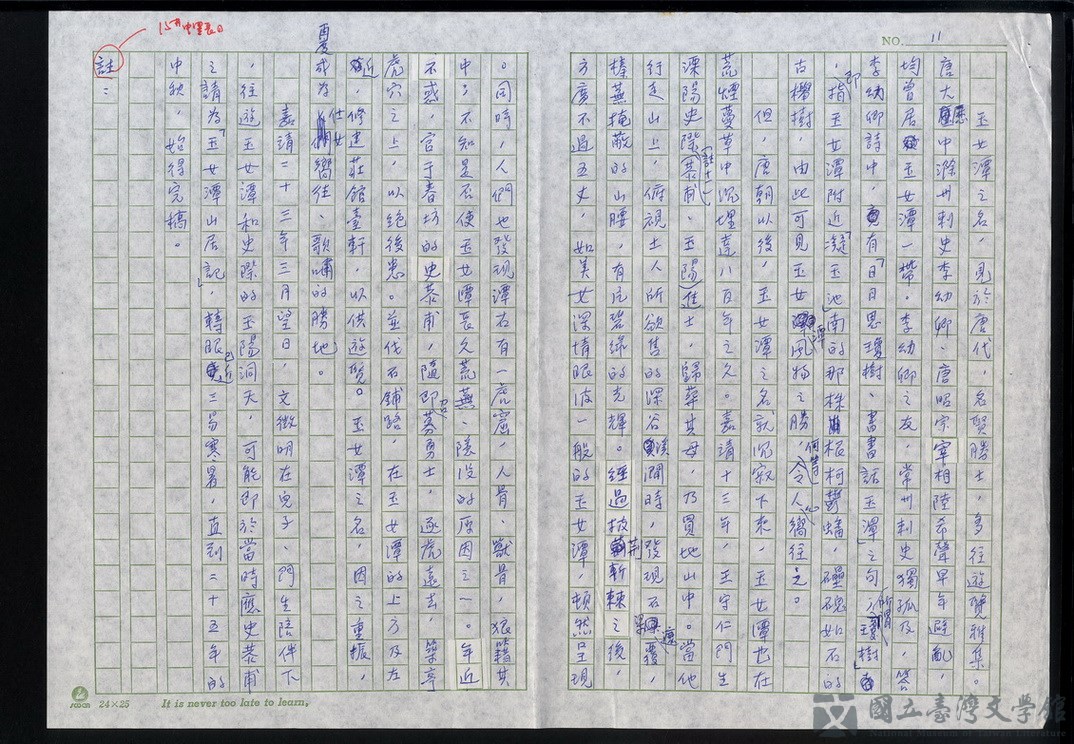 NO. 11
玉女潭之名,見於唐代,名賢勝士,多往遊聽雅集。
唐大歷中滁州刺史李幼卿、唐昭宗宰相陸希聲早年避亂,
均曾居玉女潭一帶。李幼卿之友,常州刺史獨孤及,答
李幼卿詩中,有「日日思瓊樹、書書話玉潭」之句,所謂「瓊樹」
,即指玉女潭附近「凝玉池」南的那株柘柯鬱蟠,礧磈如石的
古櫸樹,由此可見玉女潭風物之勝,何等令人心嚮往之。
但,唐朝以後,玉女潭之名就沉寂下來,玉女潭也在
荒煙蔓草中沉埋達八百年之久。嘉靖十三年,王守仁門生
溧陽史際(恭甫、玉陽)(註十一)進士,歸葬其母,乃買地山中。當他
行走山上,俯視土人所欲售的深谷溪澗時,發現石壇深覆,
榛蕪掩蔽的山腰,有片碧綠的光輝。經過披荆斬棘之後,
方廣不過五丈,如美女深情眼波一般的玉女潭,頓然呈現
。同時,人們也發現潭右有一虎窟,人骨、獸骨,狼籍其
中;不知是否使玉女潭長久荒蕪、隱沒的原因之一。年近
不惑,官于春坊的史恭甫,隨即召募勇士,逐虎遠去,築亭
虎穴之上,以絕後患。並伐石鋪路,在玉女潭的上方及左
近,修建莊館臺軒,以供遊覽。玉女潭之名,因之重振,
憂成為仕女嚮往、歌嘯的勝地。
嘉靖二十三年三月望日,文徵明在兒子、門生陪伴下
,往遊玉女潭和史際的玉陽洞天,可能即於當時應史恭甫
之請為「玉女潭山居記」,轉眼已近三易寒暑,直到二十五年的
中秋,始得完稿。
註:
24×25
It is never too late to learn,
國立臺灣文學館
National Museum of Taiwan Literature